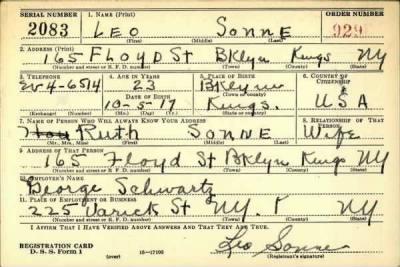 SERIAL NUMBER 1. NAME (Print) ORDER NUMBER
2083 LEO SONNE 929
(First) (Middle) (Last)
2. ADDRESS (Print)
165 FLOYD St BKlyn Kings NY
(Number and street or R. F. D. number) (Town) (County) (State)
3. TELEPHONE 4. AGE IN YEARS 5. PLACE OF BIRTH 6. COUNTRY OF CITIZENSHIP
Ev 4-6514 23 BKlyn
DATE OF BIRTH (Town or county)
10-5-17 Kings. USA
(Mo.) (Day) (Yr.) (State or country)
7. NAME OF PERSON WHO WILL ALWAYS KNOW YOUR ADDRESS 8. RELATIONSHIP OF THAT PERSON
Ruth SONNE Wife
(Mr., Mrs., Miss) (First) (Middle) (Last)
9. ADDRESS OF THAT PERSON
165 Floyd St BKlyn Kings NY
(Number and street or R. F. D. number) (Town) (County) (State)
10. EMPLOYER'S NAME
George Schwartz
11. PLACE OF EMPLOYMENT OR BUSINESS
225 Varick St NY. NY
(Number and street or R. F. D. number) (Town) (County) (State)
I AFFIRM THAT I HAVE VERIFIED ABOVE ANSWERS AND THAT THEY ARE TRUE.
REGISTRATION CARD
D. S. S. FORM 1 (over) 16-17105 Leo Sonne
(Registrant's signature)